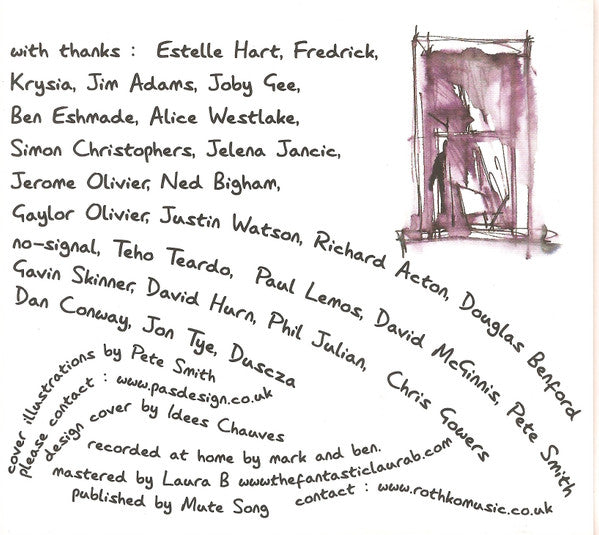 with thanks : Estelle Hart, Fredrick,
Krysia, Jim Adams, Joby Gee,
Ben Eshmade, Alice Westlake,
Simon Christophers, Jelena Jancic,
Jerome Olivier, Ned Bigham,
Gaylor Olivier, Justin Watson, Richard Acton, Douglas Benford
no-signal, Teho Teardo, Paul Lemos, David McGinnis, Pete Smith
Gavin Skinner, David Hurn, Phil Julian, Chris Gowers
Dan Conway, Jon Tye, Duscza
cover illustrations by Pete Smith
please contact : www.pasdesign.co.uk
design cover by Idees Chauves
recorded at home by mark and ben.
mastered by Laura B wwwthefantasticlaurab.com
published by Mute Song
contact : www.rothkomusic.co.uk